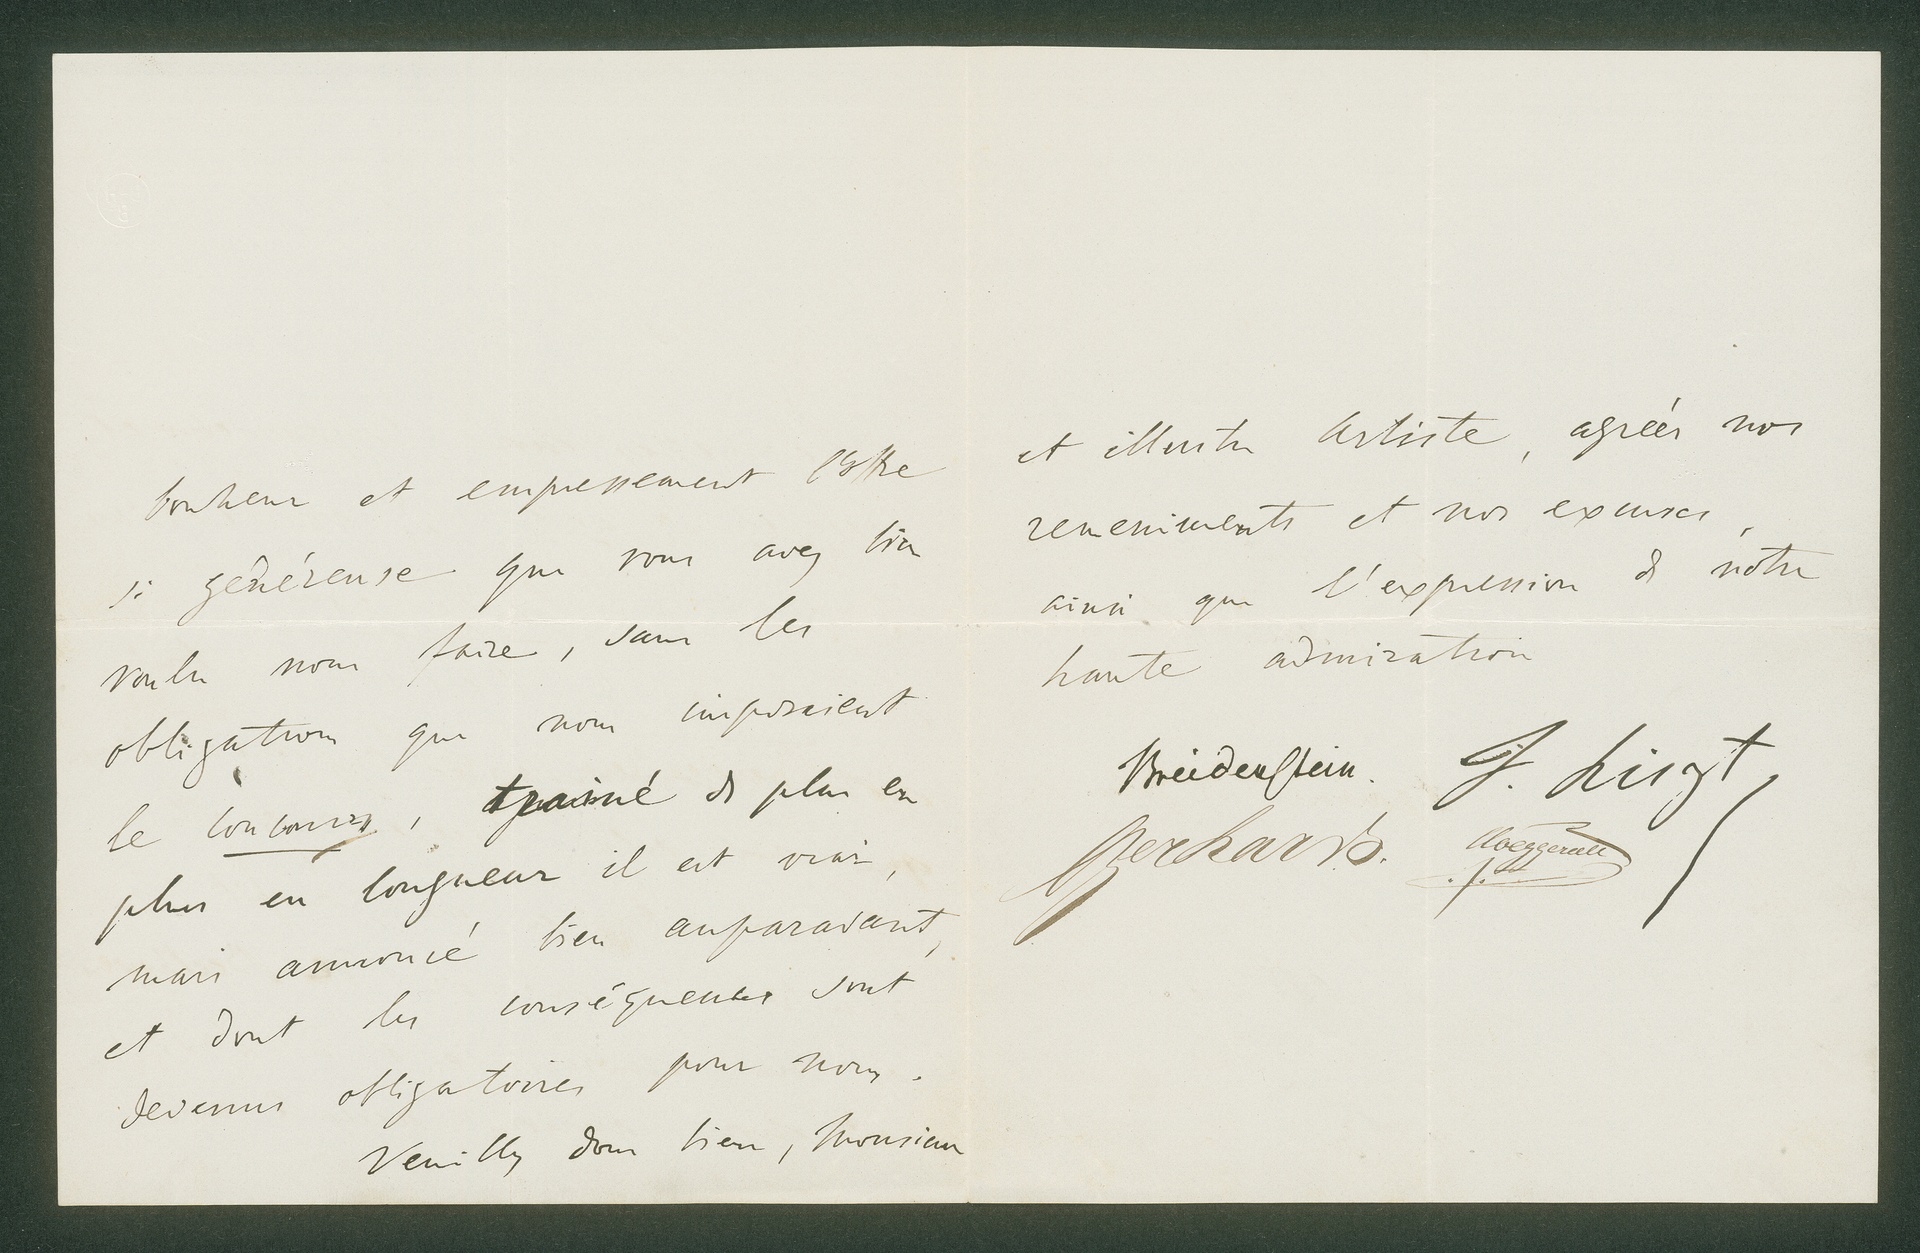 bonheur et empressement l'offre
si généreuse que vous avez bien
voulu nous faire, sans les
obligations que nous imposaient
le concours, trainé de plus en
plus en longueur il est vrai,
mais annoncé bien auparavant,
et dont les conséquences sont
devenues obligatoires pour nous.
Veuillez donc bien, Monsieur
et illustre Artiste, agréér nos
remerciments et nos excuses,
ainsi que l'expression de nôtre
haute admiration
Breidenstein. F. Liszt
Gerhards. Noeggerath